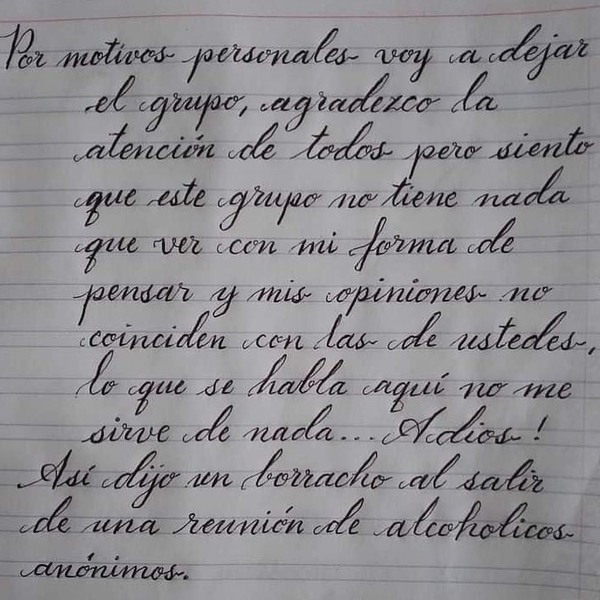 Por motivos personales voy a dejar
el grupo, agradezco la
atención de todos pero siento
que este grupo no tiene nada
que ver con mi forma de
pensar y mis opiniones no
coinciden con las de ustedes,
lo que se habla aquí no me
sirve de nada... Adios!
Así dijo un borracho al salir
de una reunión de alcoholicos
anónimos.